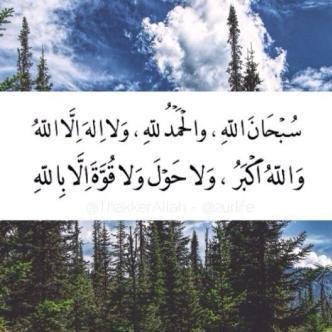 سُبْحَانَ اللّٰهِ ، والْحَمْدُ لِلّٰهِ ، وَلَا اِلٰهَ اِلَّا اللّٰهُ
وَ اللّٰهُ اَكْبَرُ ، وَلَا حَوْلَ وَلَا قُوَّةَ اِلَّا بِاللّٰهِ
@ThakkerAllah - @2urlife